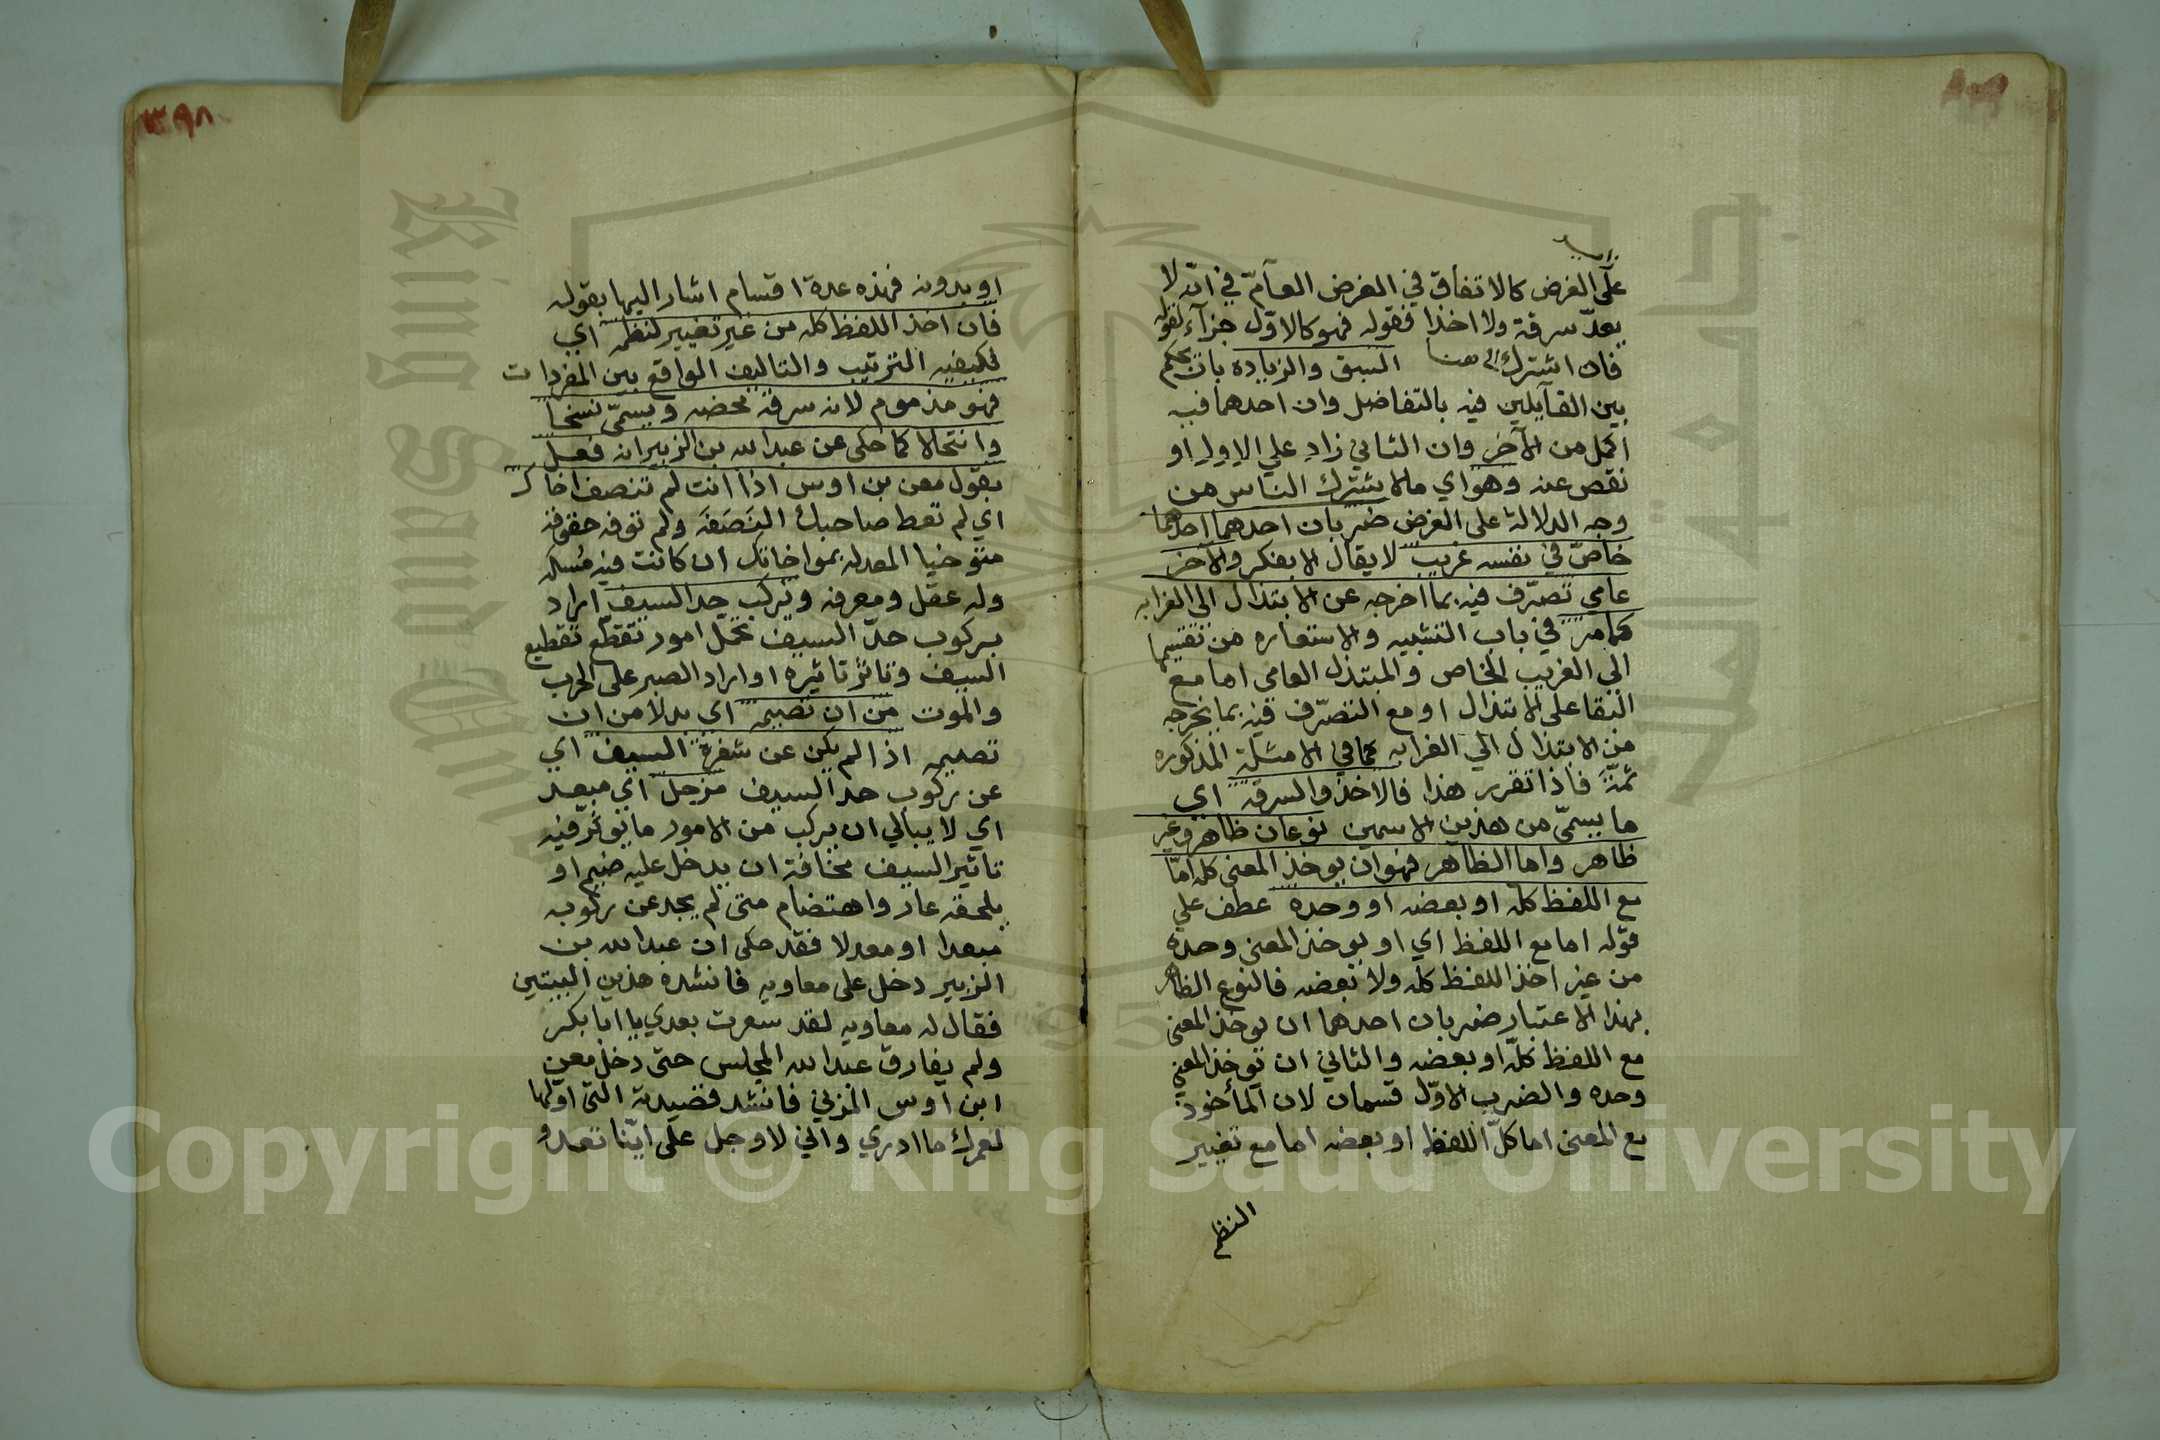 على الغرض كالاتفاق في الغرض العآمّ في انّه لا
يعدّ سرقة ولا اخذا فقوله فهو كالاوّل جزآء لقوله
فان اشترك الى هنا السبق والزيادة بان يحكم
بين القآيلين فيه بالتفاضل وان احدهما فيه
اكمل من الآخر وان الثاني زاد علي الاول او
نقص عنه وهو اي مالا يشترك الناس من
وجه الدلالة على الغرض ضربان احدهما احدهما
خاصّ في نفسه غريب لا يقال الا بفكر والآخر
عامي تصرّف فيه بما اخرجه عن الابتذال الى الغرابه
كما مر في باب التشبيه والاستعاره من تقسيمها
الي الغريب الخاص والمبتذل العامى اما مع
البقا على الابتذال او مع التصرّف فيه بما يخرجه
من الابتذال الي الغرابه كما في الامثلة المذكوره
ثمّة فاذا تقرر هذا فالاخذ والسرقه اي
ما يسمّى من هذين الاسمين نوعان ظاهر وغير
ظاهر واما الظاهر فهو ان يوخذ المعنى كله امّا
مع اللفظ كله او بعضه او وحده عطف علي
قوله اما مع اللفظ اي او يوخذ المعنى وحده
من غير اخذ اللفظ كله ولا بعضه فالنوع الظاهر
بهذا الاعتبار ضربان احدهما ان يوخذ المعنى
مع اللفظ كلّه او بعضه والثاني ان يوخذ المعني
وحده والضرب الاوّل قسمان لان المأخوذ
مع المعنى اما كلّ اللفظ او بعضه اما مع تغيير
النظم
٣٩٨
او بدونه فهذه عدة اقسام اشار اليها بقوله
فان اخذ اللفظ كله من غير تغيير لنظمه اي
لكيفيه الترتيب والتاليف الواقع بين المفردات
فهو مذموم لانه سرقة محضه ويسمّى نسخا
وانتحالا كما حكى عن عبد الله بن الزبير انه فعل
بقول معن بن اوس اذا انت لم تنصف اخاك
اي لم تعط صاحبك النَصَفَة ولم توفه حقوقه
متوخيا المعدله بمواخاتك ان كانت فيه مُسكه
وله عقل ومعرفه ويركب حد السيف اراد
بركوب حدّ السيف تحمّل امور تقطّع تقطيع
السيف وتاثر تاثيره او اراد الصبر على الحرب
والموت من ان تضيمه اي بدلا من ان
تضيمه اذا لم يكن عن شفرة السيف اي
عن ركوب حد السيف مزحل اي مبعد
اي لا يبالي ان يركب من الامور ما يوثر فيه
تاثير السيف مخافة ان يدخل عليه ضيم او
يلحقه عار واهتضام متى لم يجد عن ركوبه
مبعدا او معدلا فقد حكى ان عبد الله بن
الزبير دخل على معاويه فانشده هذين البيتين
فقال له معاويه لقد شعرت بعدي يا ابا بكر
ولم يفارق عبد الله المجلس حتى دخل معن
ابن اوس المزني فانشد قصيدة التى اولها
لعمرك ما ادري واني لاوجل على ايّنا تعدو
Copyright © King Saud University